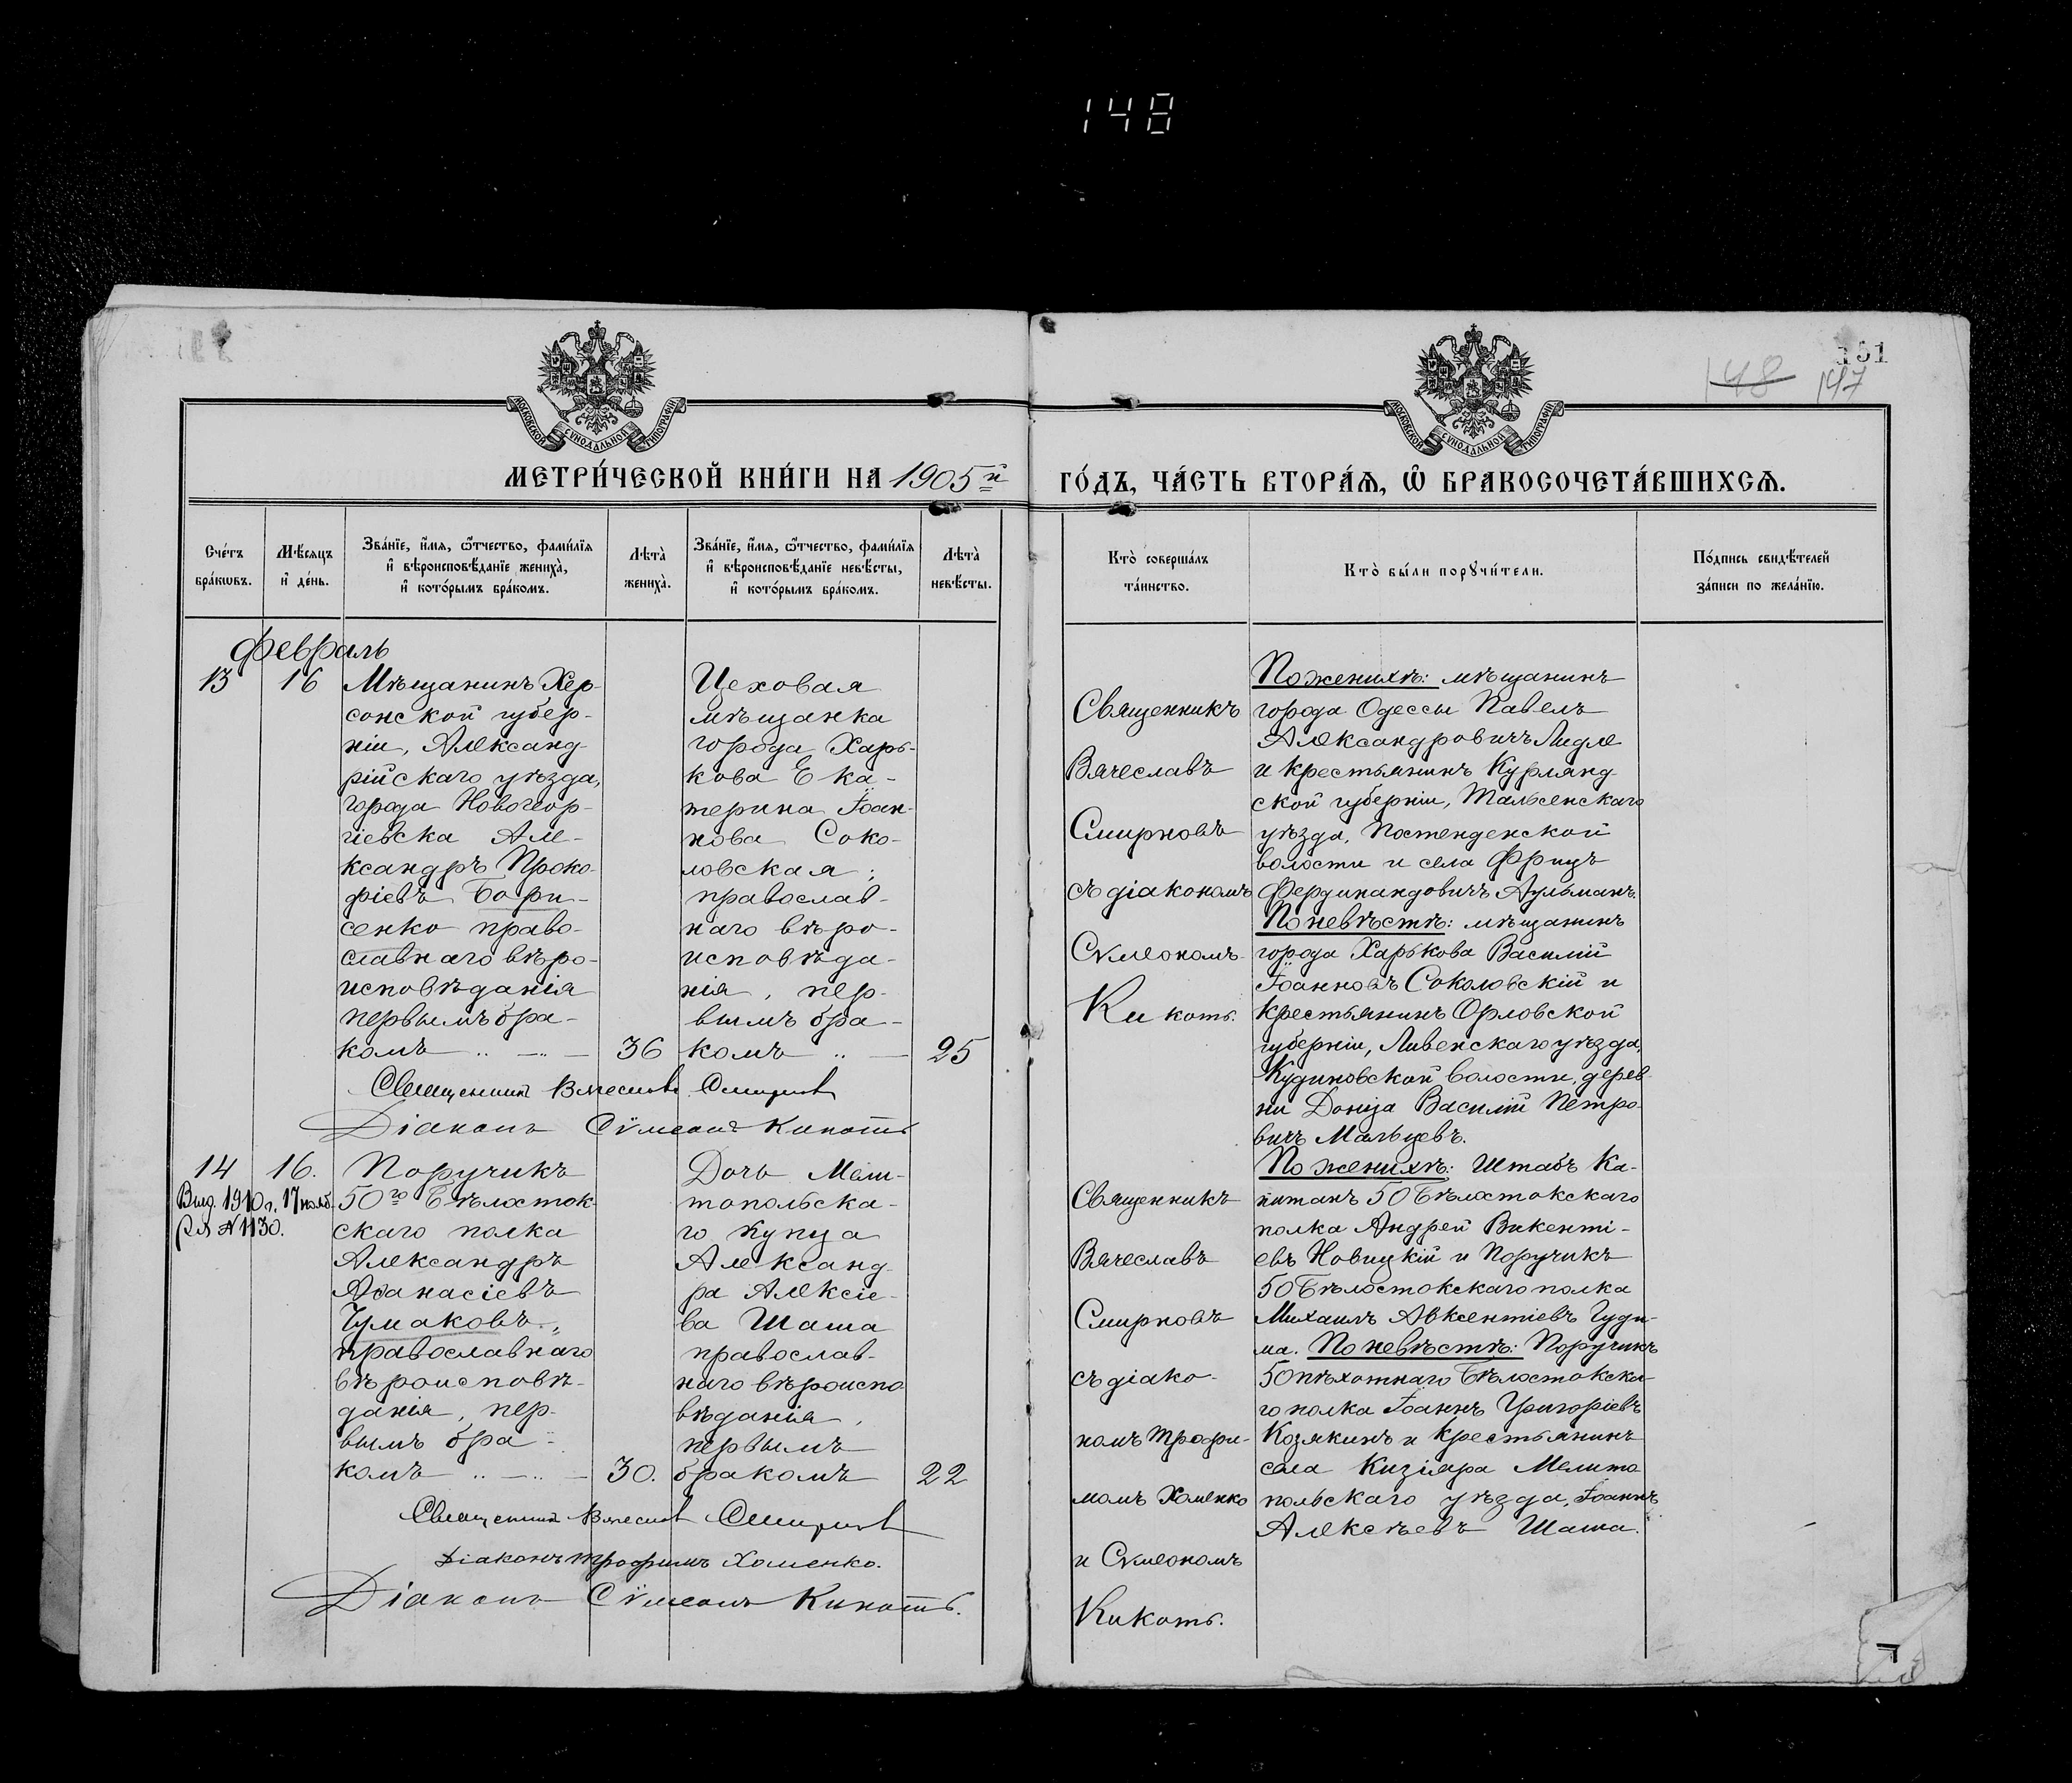 148
151
148 147
МОСКОВСКОЙ СѴНОДАЛЬНОЙ ТИПОГРАФІИ
МОСКОВСКОЙ СѴНОДАЛЬНОЙ ТИПОГРАФІИ
МЕТРИ́ЧЕСКОЙ КНИ́ГИ НА 1905й ГО́ДЪ, ЧА́СТЬ ВТОРА́Ѧ, Ѽ БРАКОСОЧЕТА́ВШИХСѦ.
Сче́тъ
бра́кѡвъ.
Мѣ́сяцъ
и҆ де́нь.
Зва́нїе, и҆́мѧ, ѻ҆́тчество, фами́лїѧ
и҆ вѣроисповѣ́данїе жениха̀,
и҆ кото́рымъ бра́комъ.
Лѣта̀
жениха̀.
Зва́нїе, и҆́мѧ, ѻ҆́тчество, фами́лїѧ
и҆ вѣроисповѣ́данїе невѣ́сты,
и҆ кото́рымъ бра́комъ.
Лѣта̀
невѣ́сты.
Кто̀ соверша́лъ
та́инство.
Кто̀ бы́ли порꙋчи́тели.
По́дпись свидѣ́телей
за́писи по жела́нїю.
Февраль
13
16
Мѣщанинъ Хер-
сонской губер-
ніи, Александ-
рійскаго уѣзда,
города Новогеор-
гіевска Але-
ксандръ Проко-
фіевъ Бори-
сенко право-
славнаго вѣро-
исповѣданія
первымъ бра-
комъ
36
Цеховая
мѣщанка
города Харь-
кова Ека-
терина Іоан-
нова Соко-
ловская;
православ-
наго вѣро-
исповѣда-
нія, пер-
вымъ бра-
комъ
25
Священникъ Вячеславъ Смирновъ
Діаконъ Сѵмеонъ Кикоть
Священникъ
Вячеславъ
Смирновъ
съ діакономъ
Сѵмеономъ
Кикоть.
По женихѣ: мѣщанинъ
города Одессы Павелъ
Александровичъ Лидле
и крестьянинъ Курлянд-
ской губерніи, Тальсенскаго
уѣзда, Постенденской
волости и села Фрицъ
Фердинандовичъ Аульманъ.
По невѣстѣ: мѣщанинъ
города Харькова Василій
Іоанновъ Соколовскій и
крестьянинъ Орловской
губерніи, Ливенскаго уѣзда,
Кудиновской волости, дерев-
ни Донца Василій Петро-
вичъ Мальцевъ.
14
16.
Выд. 1910 г. 17 нояб.
№ 1130.
Поручикъ
50го Бѣлосток-
скаго полка
Александръ
Аѳанасіевъ
Чумаковъ,
православнаго
вѣроисповѣ-
данія, пер-
вымъ бра-
комъ
30.
Дочь Мели-
топольска-
го купца
Александ-
ра Алексіе-
ва Шаша
православ-
наго вѣроиспо
вѣданія,
первымъ
бракомъ
22
Священникъ Вячеславъ Смирновъ
Діаконъ Трофимъ Хоменко.
Діаконъ Сѵмеонъ Кикоть.
Священникъ
Вячеславъ
Смирновъ
съ діако-
номъ Трофи-
момъ Хоменко
и Сѵмеономъ
Кикоть.
По женихѣ: Штабъ Ка-
питанъ 50 Бѣлостокскаго
полка Андрей Викенті-
евъ Новицкій и Поручикъ
50 Бѣлостокскаго полка
Михаилъ Авксентіевъ Гуди-
ма. По невѣстѣ: Поручикъ
50 пѣхотнаго Бѣлостокска-
го полка Іоаннъ Григоріевъ
Козякинъ и крестьянинъ
села Кизіяра Мелито
польскаго уѣзда, Іоаннъ
Алексѣевъ Шаша.